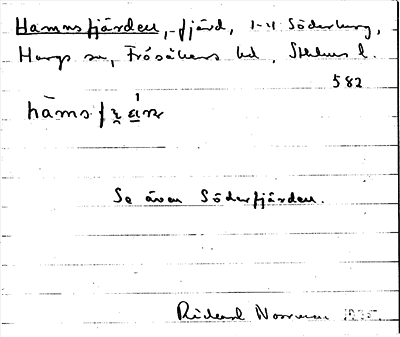 Hamnsfjärden, fjärd, i - N Söderborg,
Hargs sn, Frösåkers hd, Sthlms l.
582
Se även Söderfjärden.
Rickard Norrman